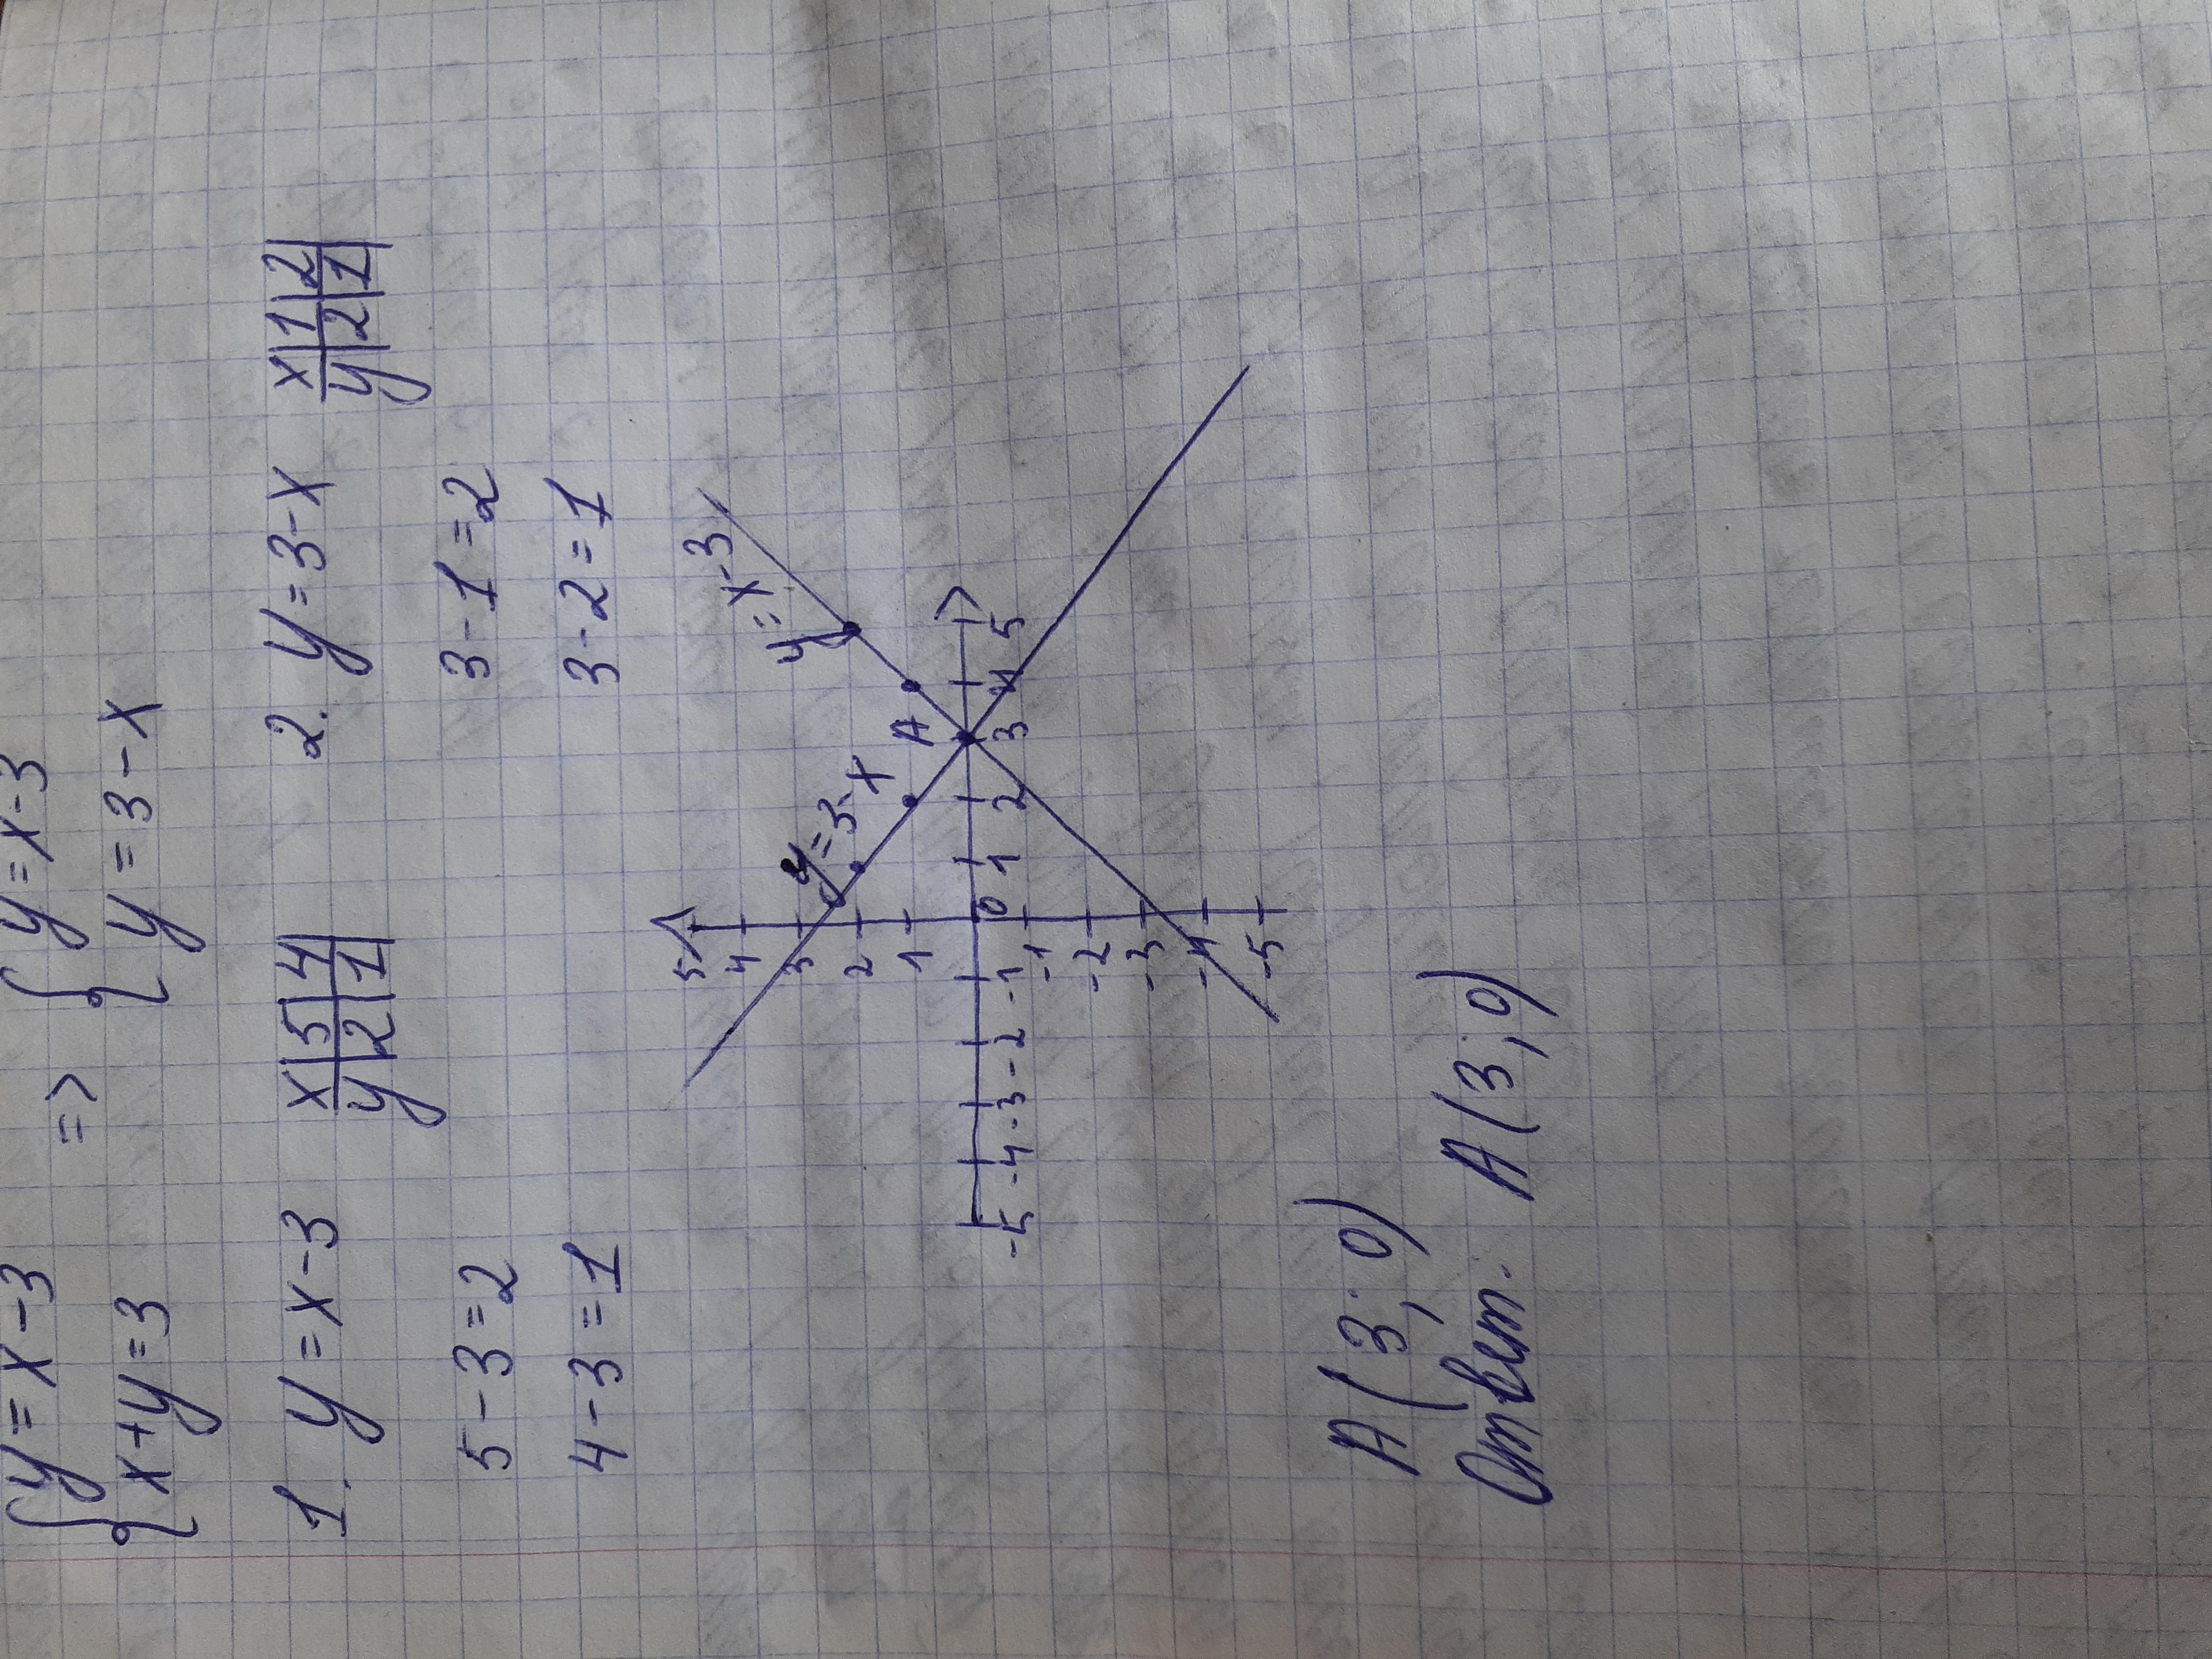 {y = x - 3 => {y = x - 3
{x + y = 3 {y = 3 - x
1. y = x - 3 x 5 4 2. y = 3 - x x 1 2
y 2 1 y 2 1
5 - 3 = 2 3 - 1 = 2
4 - 3 = 1 3 - 2 = 1
5
4
3
2
1
y = 3 - x
A
y = x - 3
-5 -4 -3 -2 -1 0 1 2 3 4 5
-1
-2
-3
-4
-5
A(3; 0)
Ответ: A(3; 0)